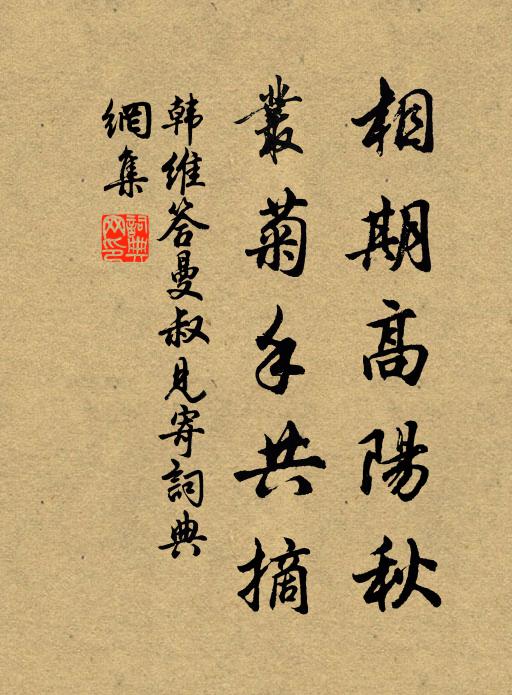 相期高陽秋
叢菊手共摘
韩維答曼叔見寄詞典
網集
詞典網印